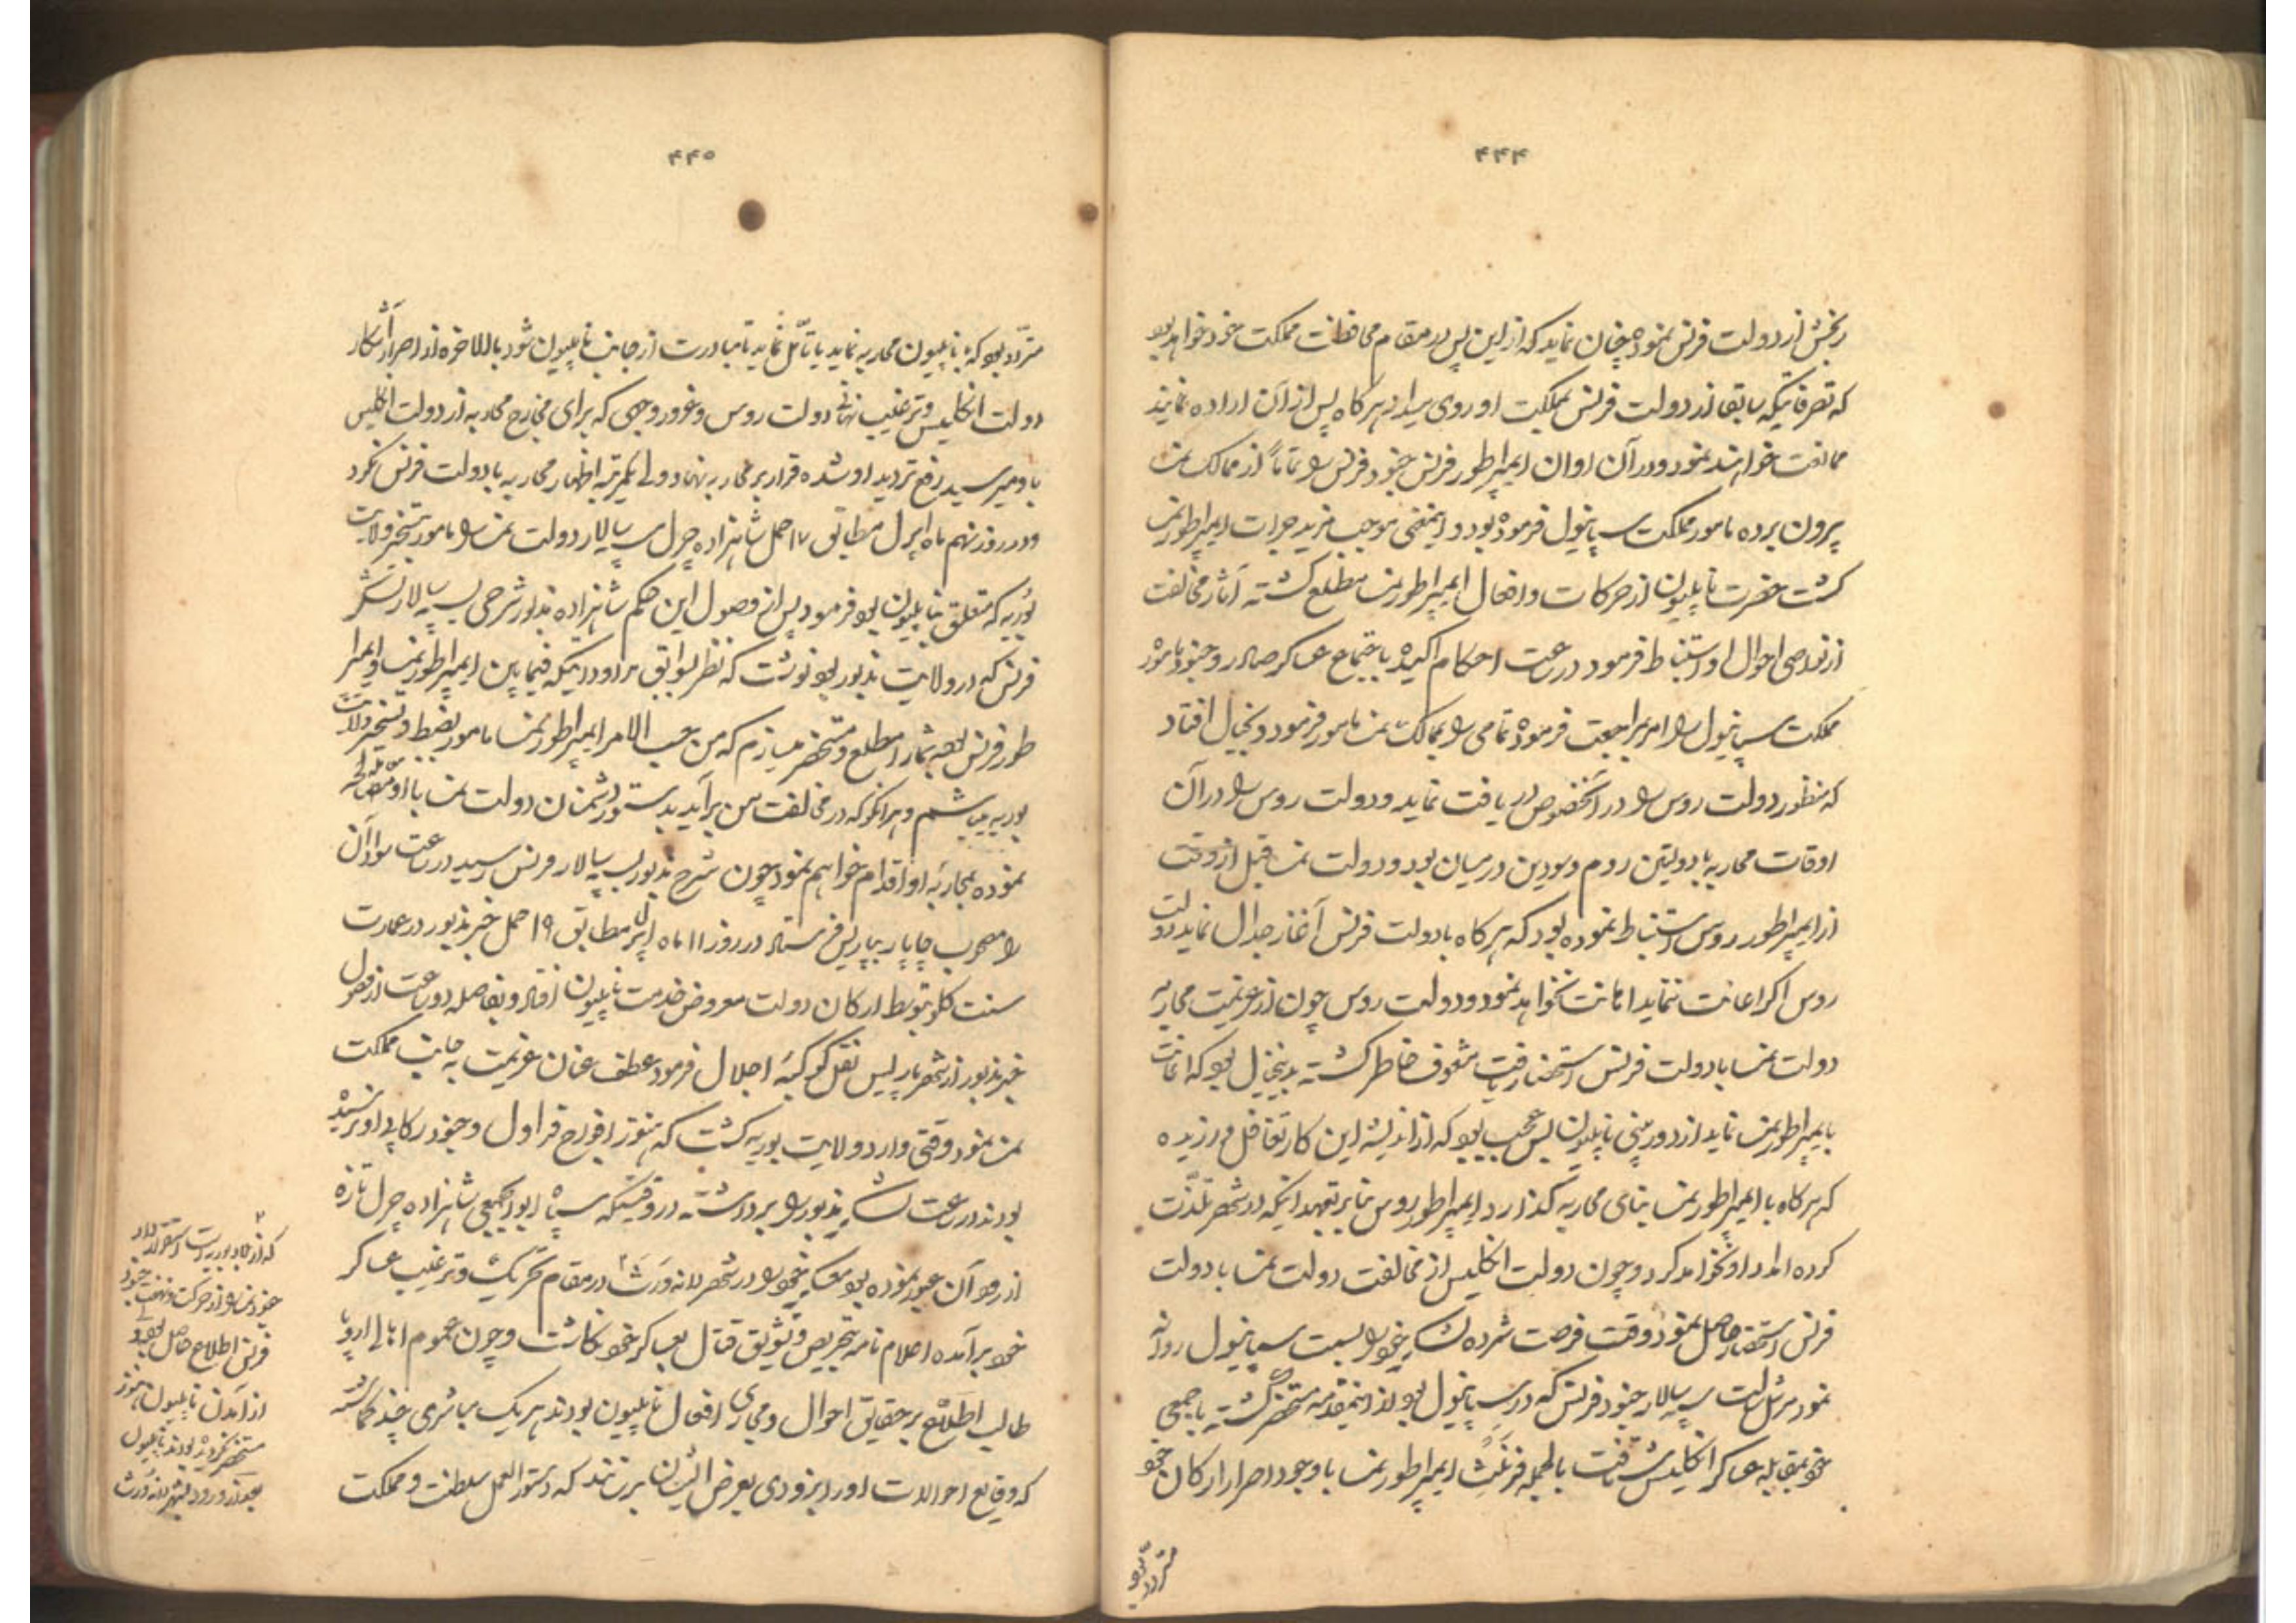 ۴۴۴
رنجش از دولت فرنس نموده چنان نماید که از این پس در مقام محافظت مملکت خود خواهد بود
که تصرفاتیکه سابقا از دولت فرنس بمملکت او روی میداد هر کاه پس از آن اراده نمایند
ممانعت خواهند نمود و در آن اوان ایمپراطور فرنس جنود فرنس را تماماً از ممالک نمسا
بیرون برده مامور مملکت سپانیول فرموده بود و اینمعنی موجب مزید جرات ایمپراطور نمسا
کشت حضرت ناپلیون از حرکات و افعال ایمپراطور نمسا مطلع کشته آثار مخالفت
از نواصی احوال او استنباط فرمود در ساعت احکام اکیده باجتماع عساکر صادر و جنود مامور
مملکت سپانیول را امر بمراجعت فرموده تمامی را بممالک نمسا مامور فرمود و بخیال افتاد
که منظور دولت روس را در آنخصوص دریافت نماید و دولت روس را در آن
اوقات محاربه با دولتین روم و سودین در میان بود و دولت نمسا قبل از وقت
از ایمپراطور روس استنباط نموده بود که هر کاه با دولت فرنس آغاز جدال نماید دولت
روس اکر اعانت ننماید اهانت نخواهد نمود و دولت روس چون از عزیمت محاربه
دولت نمسا با دولت فرنس استحضار یافت مشعوف خاطر کشته بدینخیال بود که اعانت
بایمپراطور نمسا نماید از دوربینی ناپلیون بس عجب بود که از اندیشه این کار تغافل ورزیده
که هر کاه با ایمپراطور نمسا بنای محاربه کذارد ایمپراطور روس بنا بر تعهد اینکه در شهر تلذت
کرده امداد او نخواهد کرد و چون دولت انکلیس از مخالفت دولت نمسا با دولت
فرنس استحضار حاصل نمود وقت فرصت شمرده لشکر خود را بسمت سپانیول روانه
نمود مرشل سلت سپه سالار جنود فرنس که در سپانیول بود از اینمقدمه مستحضر کشته با جمعی
خود بمقابله عساکر انکلیس شتافت بالجمله فرنسث ایمپراطور نمسا با وجود اصرار ارکان خود
متردد بود
۴۴۵
متردد بود که با ناپلیون محاربه نماید یا تامّل نماید تا مبادرت از جانب ناپلیون شود بالاخره از اصرار آشکار
دولت انکلیس و ترغیب نهانی دولت روس و غرور وجهی که برای مخارج محاربه از دولت انکلیس
باو میرسید رفع تردید او شده قرار بر محاربه نهاد ولی یکمرتبه اظهار محاربه با دولت فرنس نکرد
و در روز نهم ماه اپرل مطابق ۱۷ حمل شاهزاده چرل سپه سالار دولت نمسا را مامور تسخیر ولایت
بوریه که متعلق بناپلیون بود فرمود پس از وصول این حکم شاهزاده مذبور شرحی بسپه سالار لشکر
فرنس که در ولایت مذبور بود نوشت که نظر بسوابق مراوداتیکه فیما بین ایمپراطور نمسا و ایمپرا
طور فرنس بوده شما را مطلع و مستحضر میسازم که من حسب الامر ایمپراطور نمسا مامور بضبط و تسخیر ولایت
بوریه میباشم و هر آنکو که در مخالفت من برآید بدستور دشمنان دولت نمسا با او معامله
نموده بمحاربه او اقدام خواهم نمود چون شرح مذبور بسپه سالار فرنس رسید در ساعت سواد آن
را مصحوب چاپار بپاریس فرستاد در روز ۱۱ ماه اپرل مطابق ۱۹ حمل خبر مذبور در عمارت
سنت کلو بتوسط ارکان دولت معروض خدمت ناپلیون افتاد و بفاصله دو ساعت از وصول
خبر مذبور از شهر پاریس نقل کوکبه اجلال فرمود عطف عنان عزیمت به جانب مملکت
نمسا نمود وقتی وارد ولایت بوریه کشت که هنوز افواج قراول و جنود رکابی او نرسیده
بودند در ساعت لشکر مذبور را برداشته در وقتیکه سپاه ابوابجمعی شاهزاده چرل تازه
از رود آن عبور نموده بود معسکر خود را در شهر لانه ورث ۲ در مقام تحریک و ترغیب عساکر
خود برآمده اعلام نامه بتحریص و تشویق قتال بعساکر خود نکاشت و چون عموم اهالی اروپا
طالب اطلاع بر حقایق احوال و مجاری افعال ناپلیون بودند هر یک مباشری چند کماشته
که وقایع احوالات او را بزودی بعرض ایشان برسانند که دستور العمل سلطنت و مملکت
۲
که از بلاد بوریه است استقرار داد
جنود نمسا از حرکت و نهضت جنود
فرنس اطلاع حاصل بود ولی
از آمدن ناپلیون هنوز
مستحضر نکردیده بودند ناپلیون
بعد از ورود بشهر لانه ورث